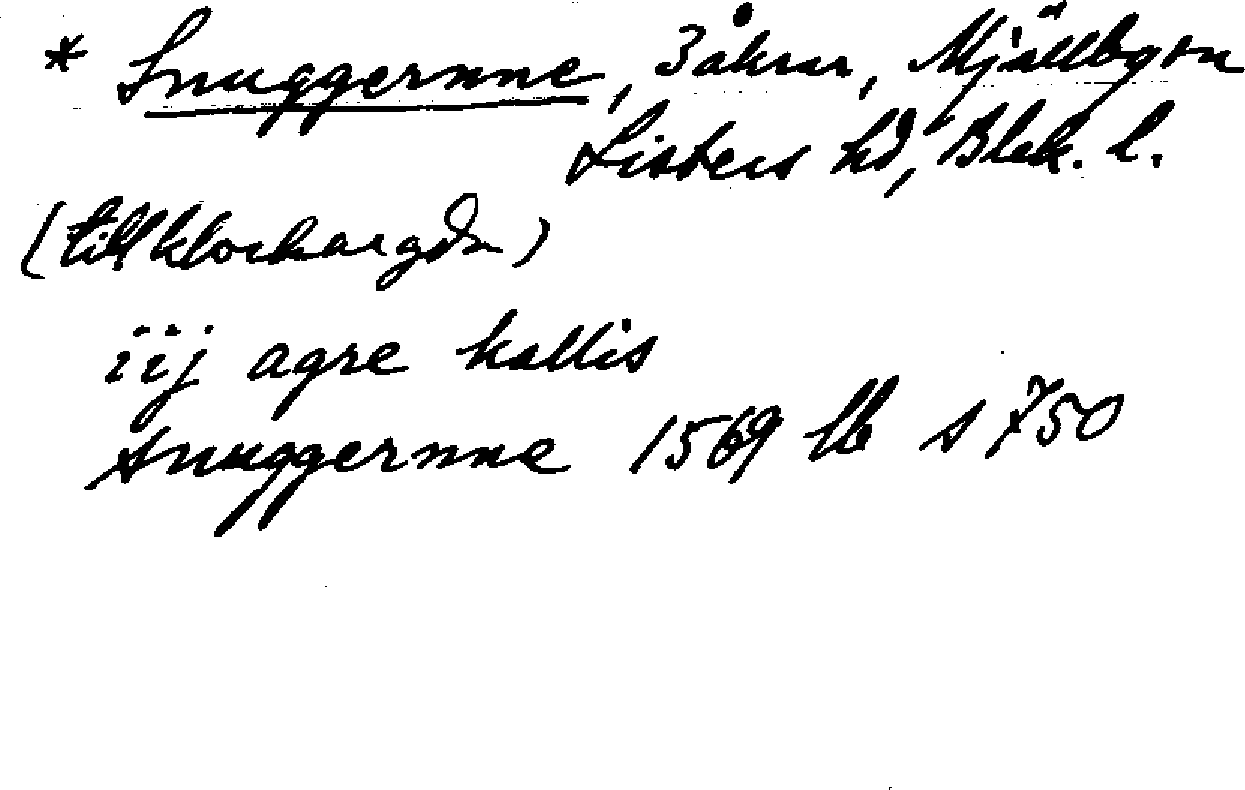 * Snuggernne, 3 åkrar, Mjällby sn
Listers hd, Blek. l.
(till klockargdn)
iij agre kallis
snuggernne 1569 lb s 750